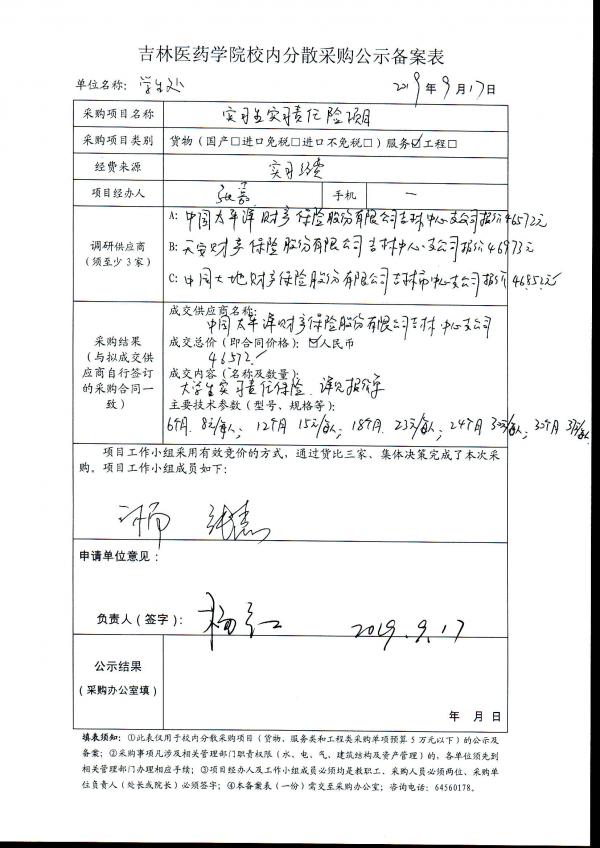 吉林医药学院校内分散采购公示备案表
单位名称：学生处 2019年9月17日
采购项目名称 实习生实习责任险项目
采购项目类别 货物（国产□进口免税□进口不免税□）服务☑工程□
经费来源 实习经费
项目经办人 张慧 手机 —
调研供应商
（须至少3家）
A: 中国太平洋财产保险股份有限公司吉林中心支公司报价46572元
B: 天安财产保险股份有限公司吉林中心支公司报价46973元
C: 中国大地财产保险股份有限公司吉林市中心支公司报价46852元
采购结果
（与拟成交供
应商自行签订
的采购合同一
致）
成交供应商名称：
中国太平洋财产保险股份有限公司吉林中心支公司
成交总价（即合同价格）：☑人民币
46572
成交内容（名称及数量）：
大学生实习责任保险 详见报价单
主要技术参数（型号、规格等）：
6个月 8元/每人；12个月 15元/每人；18个月 23元/每人；24个月 30元/每人；
项目工作小组采用有效竞价的方式，通过货比三家、集体决策完成了本次采
购。项目工作小组成员如下：
张慧
申请单位意见：
负责人（签字）：杨红 2019.9.17
公示结果
（采购办公室填）
年 月 日
填表须知：①此表仅用于校内分散采购项目（货物、服务类和工程类采购单项预算5万元以下）的公示及
备案；②采购事项凡涉及相关管理部门职责权限（水、电、气、建筑结构及资产管理）的，各单位须先到
相关管理部门办理相应手续；③项目经办人及工作小组成员必须均是教职工、采购人员必须两位、采购单
位负责人（处长或院长）必须签字；④本备案表（一份）需交至采购办公室；咨询电话：64560178。